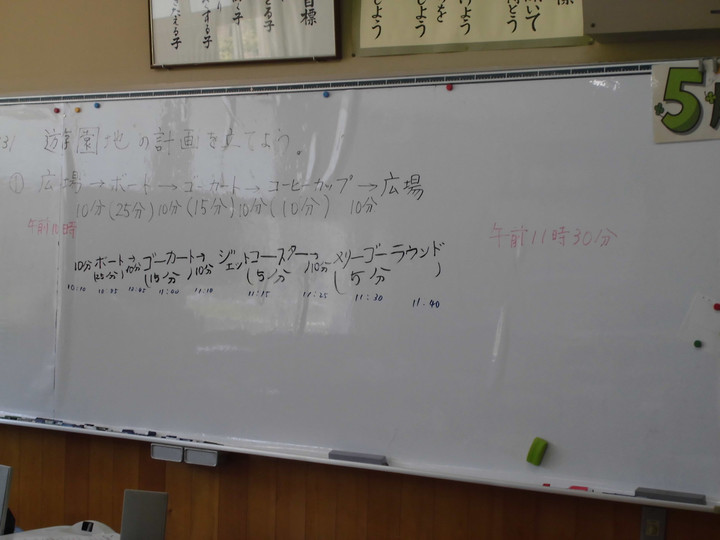 目標
遊園地の計画を立てよう。
① 広場→ボート→ゴーカート→コーヒーカップ→広場
10分(25分)10分(15分)10分(10分) 10分
午前10時
午前11時30分
10分ボート→ゴーカート→ジェットコースター→メリーゴーラウンド
(25分)10分(15分)10分(5分)10分(5分)
10:10 10:35 10:45 11:00 11:10 11:15 11:25 11:30 11:40
5